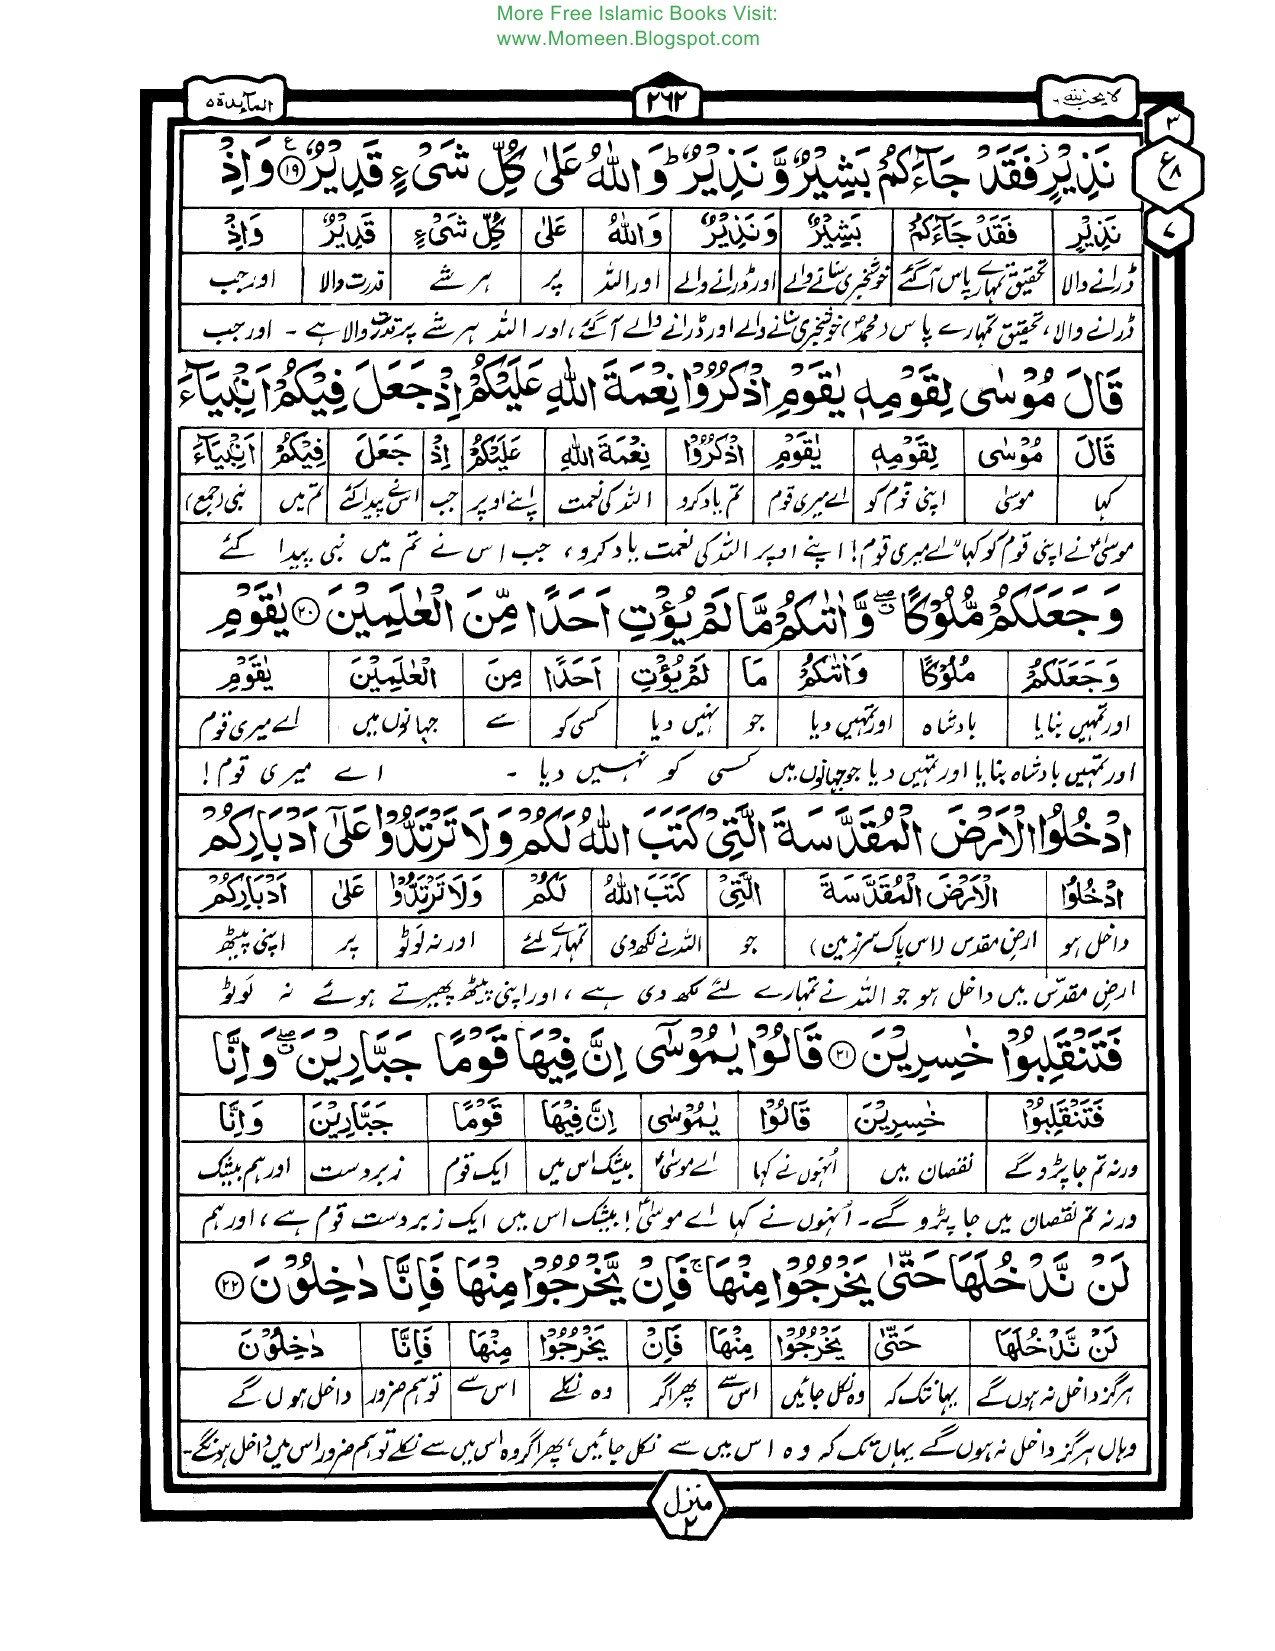 More Free Islamic Books Visit:
www.Momeen.Blogspot.com
لا يحب الله ٦ ٢٦٢ المآىِٕدة ٥
٣
ع ٨
٧
نَذِيْرٍ فَقَدْ جَآءَكُمْ بَشِيْرٌ وَّنَذِيْرٌ ؕ وَاللّٰهُ عَلٰى كُلِّ شَىْءٍ قَدِيْرٌ ۩١٩ وَاِذْ
نَذِيْرٍ فَقَدْ جَآءَكُمْ بَشِيْرٌ وَنَذِيْرٌ وَاللّٰهُ عَلٰى كُلِّ شَىْءٍ قَدِيْرٌ وَاِذْ
ڈرانے والا تحقیق تمہارے پاس آگئے خوشخبری سنانے والے اور ڈرانے والے اور اللہ پر ہر شے قدرت والا اور جب
ڈرانے والا، تحقیق تمہارے پاس (محمدؐ) خوشخبری سنانے والے اور ڈرانے والے آگئے، اور اللہ ہر شے پر قدرت والا ہے ۔ اور جب
قَالَ مُوْسٰى لِقَوْمِهٖ يٰقَوْمِ اذْكُرُوْا نِعْمَةَ اللّٰهِ عَلَيْكُمْ اِذْ جَعَلَ فِيْكُمْ اَنْۢبِيَآءَ
قَالَ مُوْسٰى لِقَوْمِهٖ يٰقَوْمِ اذْكُرُوْا نِعْمَةَ اللّٰهِ عَلَيْكُمْ اِذْ جَعَلَ فِيْكُمْ اَنْۢبِيَآءَ
کہا موسیٰ اپنی قوم کو اے میری قوم تم یاد کرو اللہ کی نعمت اپنے اوپر جب اسنے پیدا کئے تم میں نبی (جمع)
موسیٰؑ نے اپنی قوم کو کہا "اے میری قوم! اپنے اوپر اللہ کی نعمت یاد کرو، جب اس نے تم میں نبی پیدا کئے
وَجَعَلَكُمْ مُّلُوْكًا ۖ وَّاٰتٰىكُمْ مَّا لَمْ يُؤْتِ اَحَدًا مِّنَ الْعٰلَمِيْنَ ۝٢٠ يٰقَوْمِ
وَجَعَلَكُمْ مُلُوْكًا وَاٰتٰىكُمْ مَا لَمْ يُؤْتِ اَحَدًا مِنَ الْعٰلَمِيْنَ يٰقَوْمِ
اور تمہیں بنایا بادشاہ اور تمہیں دیا جو نہیں دیا کسی کو سے جہانوں میں اے میری قوم
اور تمہیں بادشاہ بنایا اور تمہیں دیا جو جہانوں میں کسی کو نہیں دیا ۔ اے میری قوم!
ادْخُلُوا الْاَرْضَ الْمُقَدَّسَةَ الَّتِىْ كَتَبَ اللّٰهُ لَكُمْ وَلَا تَرْتَدُّوْا عَلٰٓى اَدْبَارِكُمْ
ادْخُلُوا الْاَرْضَ الْمُقَدَّسَةَ الَّتِىْ كَتَبَ اللّٰهُ لَكُمْ وَلَا تَرْتَدُّوْا عَلٰى اَدْبَارِكُمْ
داخل ہو ارضِ مقدس (اس پاک سرزمین) جو اللہ نے لکھ دی تمہارے لئے اور نہ لوٹو پر اپنی پیٹھ
ارضِ مقدّس میں داخل ہو جو اللہ نے تمہارے لئے لکھ دی ہے، اور اپنی پیٹھ پھیرتے ہوئے نہ لوٹو
فَتَنْقَلِبُوْا خٰسِرِيْنَ ۝٢١ قَالُوْا يٰمُوْسٰٓى اِنَّ فِيْهَا قَوْمًا جَبَّارِيْنَ ۖ وَاِنَّا
فَتَنْقَلِبُوْا خٰسِرِيْنَ قَالُوْا يٰمُوْسٰى اِنَّ فِيْهَا قَوْمًا جَبَّارِيْنَ وَاِنَّا
ورنہ تم جا پڑو گے نقصان میں اُنہوں نے کہا اے موسیٰؑ بیشک اس میں ایک قوم زبردست اور ہم بیشک
ورنہ تم نقصان میں جا پڑو گے ۔ اُنہوں نے کہا اے موسیٰؑ! بیشک اس میں ایک زبردست قوم ہے، اور ہم
لَنْ نَّدْخُلَهَا حَتّٰى يَخْرُجُوْا مِنْهَا ۚ فَاِنْ يَّخْرُجُوْا مِنْهَا فَاِنَّا دٰخِلُوْنَ ۝٢٢
لَنْ نَّدْخُلَهَا حَتّٰى يَخْرُجُوْا مِنْهَا فَاِنْ يَخْرُجُوْا مِنْهَا فَاِنَّا دٰخِلُوْنَ
ہرگز داخل نہ ہوں گے یہانتک کہ وہ نکل جائیں اس سے پھر اگر وہ نکلے اس سے تو ہم ضرور داخل ہوں گے
وہاں ہرگز داخل نہ ہوں گے یہاں تک کہ وہ اس میں سے نکل جائیں، پھر اگر وہ اس میں سے نکلے تو ہم ضرور اس میں داخل ہونگے ۔
منزل ٢